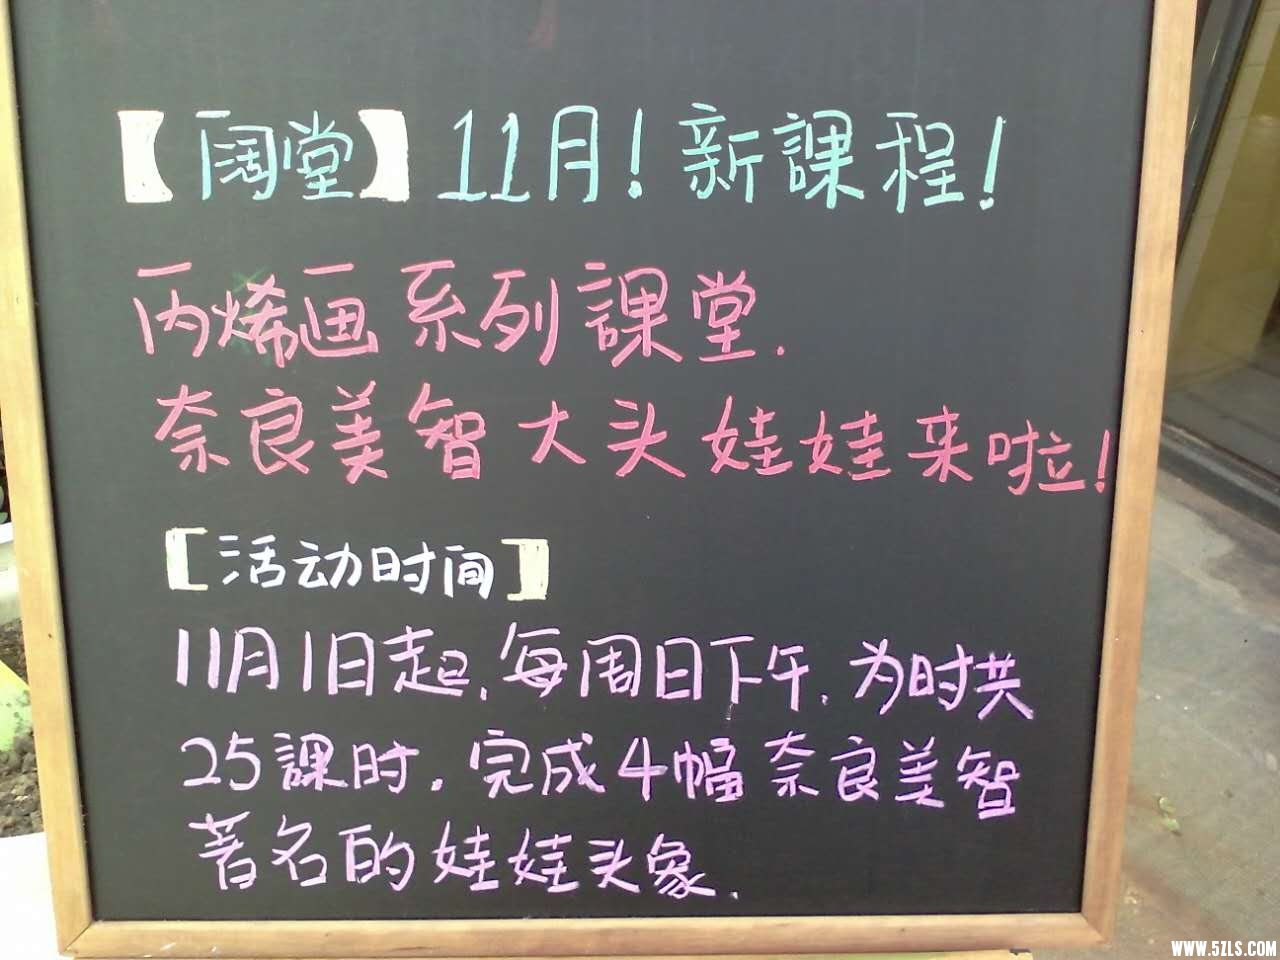 【阔堂】11月！新課程！
丙烯画系列課堂.
奈良美智大头娃娃来啦！
【活动时间】
11月1日起,每周日下午,为时共
25課时,完成4幅奈良美智
著名的娃娃头象.
WWW.5ZLS.COM